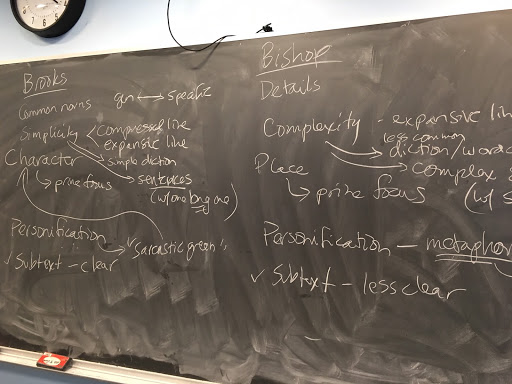 Brooks
Common nouns gen ↔ specific
Simplicity < compressed line
expansive line
simple diction
sentences
(w/ one long one)
Character
↳ prime focus
Personification
"Sarcastic green"
✓ Subtext – clear
Bishop
Details
Complexity - expansive lin
less common
diction/word
complex s
Place
↳ prime focus (w/ s
Personification – metaphor
✓ Subtext – less clear